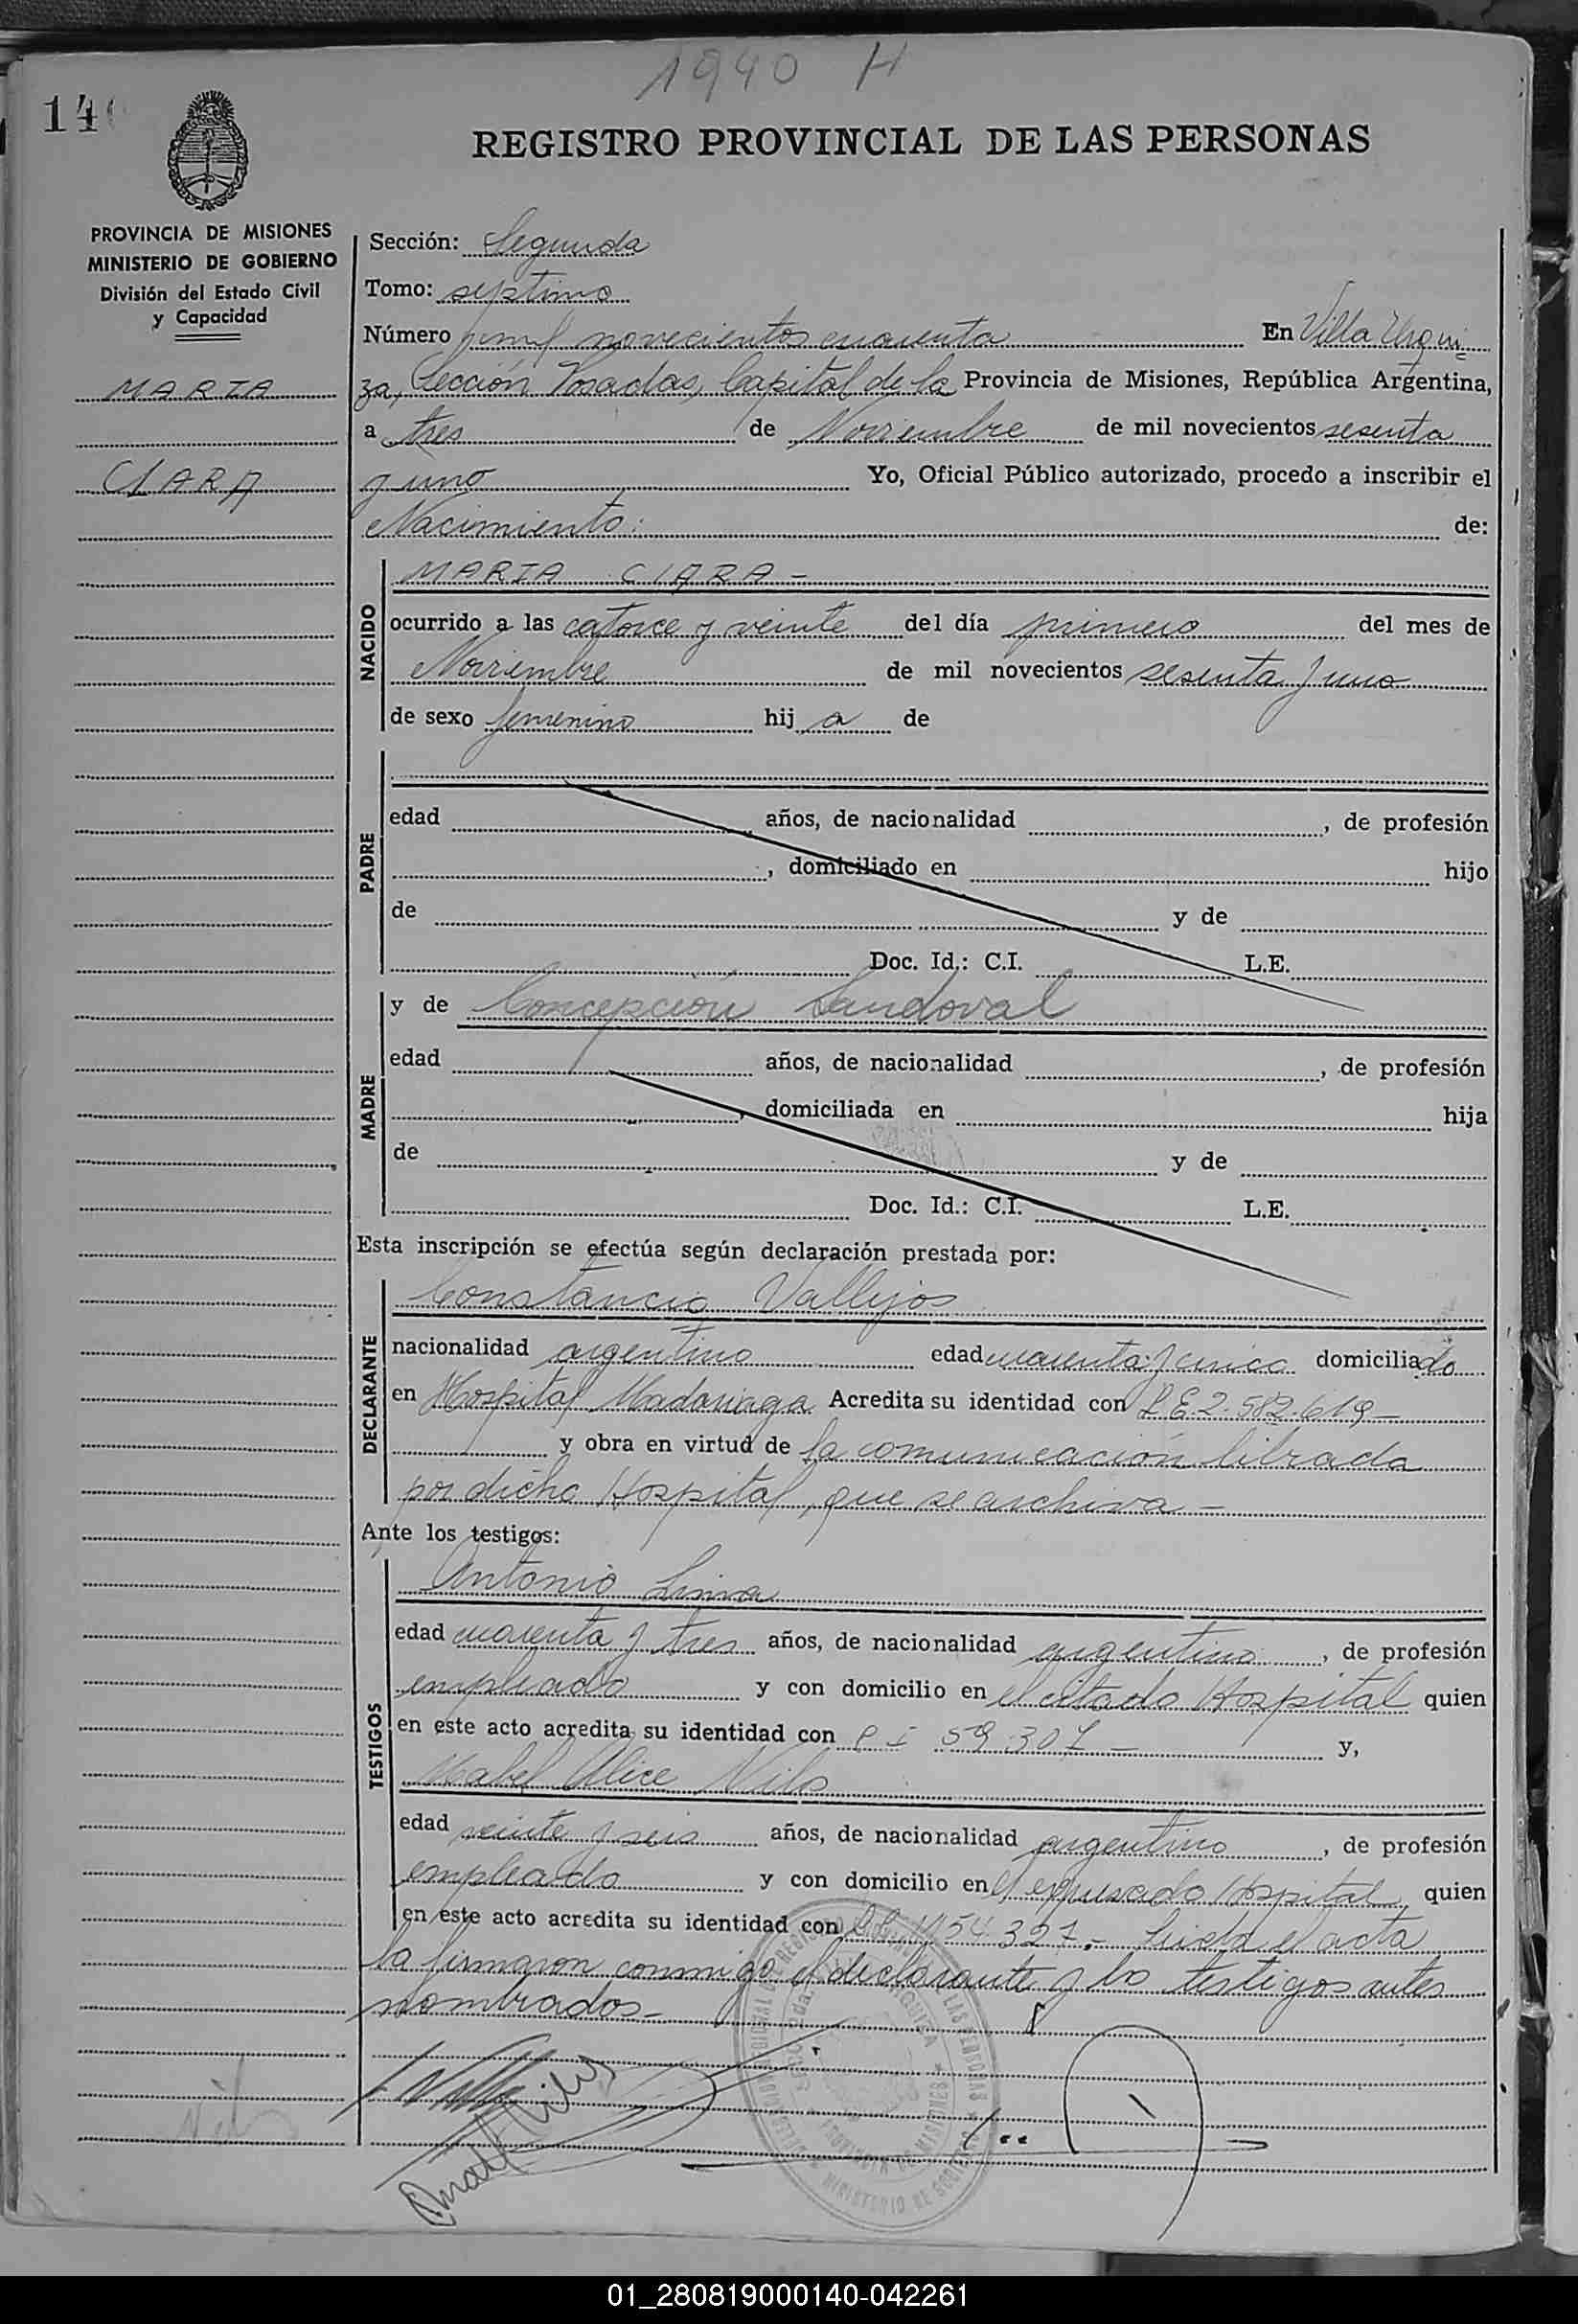 1940 H
14
REGISTRO PROVINCIAL DE LAS PERSONAS
PROVINCIA DE MISIONES
MINISTERIO DE GOBIERNO
División del Estado Civil
y Capacidad
MARIA
CLARA
Sección: Segunda
Tomo: septimo
Número mil novecientos cuarenta En Villa Urqui
za, Sección Posadas, Capital de la Provincia de Misiones, República Argentina,
a tres de Noviembre de mil novecientos sesenta
y uno Yo, Oficial Público autorizado, procedo a inscribir el
Nacimiento: de:
NACIDO
MARIA CLARA -
ocurrido a las catorce y veinte del día primero del mes de
Noviembre de mil novecientos sesenta y uno
de sexo femenino hij a de
PADRE
edad años, de nacionalidad , de profesión
, domiciliado en hijo
de y de
Doc. Id.: C.I. L.E.
MADRE
y de Concepción Sandoval
edad años, de nacionalidad , de profesión
, domiciliada en hija
de y de
Doc. Id.: C.I. L.E.
Esta inscripción se efectúa según declaración prestada por:
DECLARANTE
Constancio Vallejos
nacionalidad argentino edad cuarenta y cinco domiciliado
en Hospital Madariaga Acredita su identidad con L E 2.582.619-
y obra en virtud de la comunicación librada
por dicho Hospital, que se archiva -
Ante los testigos:
TESTIGOS
Antonio Lima
edad cuarenta y tres años, de nacionalidad argentino , de profesión
empleado y con domicilio en el citado Hospital quien
en este acto acredita su identidad con C I 59.307 - y,
Mabel Alice Vilo
edad veinte y seis años, de nacionalidad argentino , de profesión
empleado y con domicilio en el expresado Hospital, quien
en este acto acredita su identidad con 154.327.- Leída el acta
la firmaron conmigo el declarante y los testigos antes
nombrados-
01_280819000140-042261